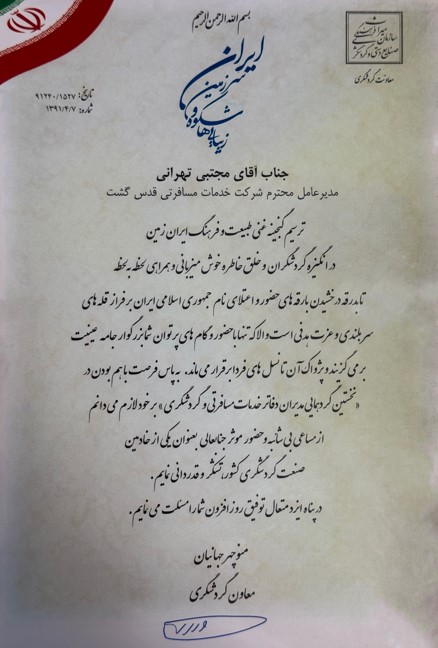 بسم الله الرحمن الرحیم
سازمان میراث فرهنگی
صنایع دستی و گردشگری
معاونت گردشگری
ایران
سرزمین
شکوه و
زیبایی‌ها
تاریخ: ۹۱۲۴۰/۱۵۲۷
شماره: ۱۳۹۱/۴/۷
جناب آقای مجتبی تهرانی
مدیرعامل محترم شرکت خدمات مسافرتی قدس گشت
ترسیم گنجینه غنی طبیعت و فرهنگ ایران زمین
در انگیزه گردشگران و خلق خاطره خوش میزبانی و همراهی لحظه به لحظه
تا بدرقه درخشیدن بارقه های حضور و اعتلای نام جمهوری اسلامی ایران بر فراز قله های
سربلندی و عزت هدفی است والا که تنها با حضور و گام های پرتوان شما بزرگوار جامه عینیت
بر می گزیند و پژواک آن تا نسل های فردا برقرار می ماند. به پاس فرصت با هم بودن در
«نخستین گردهمایی مدیران دفاتر خدمات مسافرتی و گردشگری» بر خود لازم می دانم
از مساعی بی شائبه و حضور موثر جنابعالی بعنوان یکی از خادمین
صنعت گردشگری کشور، تشکر و قدردانی نمایم.
در پناه ایزد متعال توفیق روز افزون شما را مسئلت می نمایم.
منوچهر جهانیان
معاون گردشگری